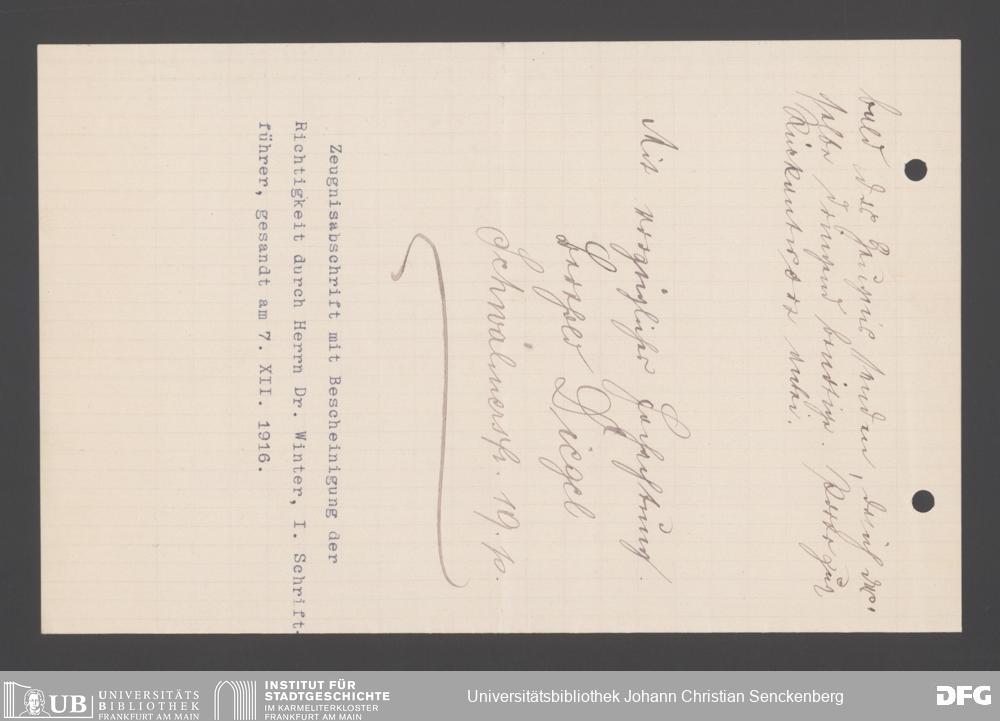 bald das Zeugnis senden, da ich das=
selbe dringend benötige. Porto zur
Rückantwort anbei.
Mit vorzüglicher Hochachtung
Diegel
Schwälmerstr. 19. p.
Zeugnisabschrift mit Bescheinigung der
Richtigkeit durch Herrn Dr. Winter, I. Schrift-
führer, gesandt am 7. XII. 1916.
UB UNIVERSITÄTS
BIBLIOTHEK
FRANKFURT AM MAIN
INSTITUT FÜR
STADTGESCHICHTE
IM KARMELITERKLOSTER
FRANKFURT AM MAIN
Universitätsbibliothek Johann Christian Senckenberg
DFG